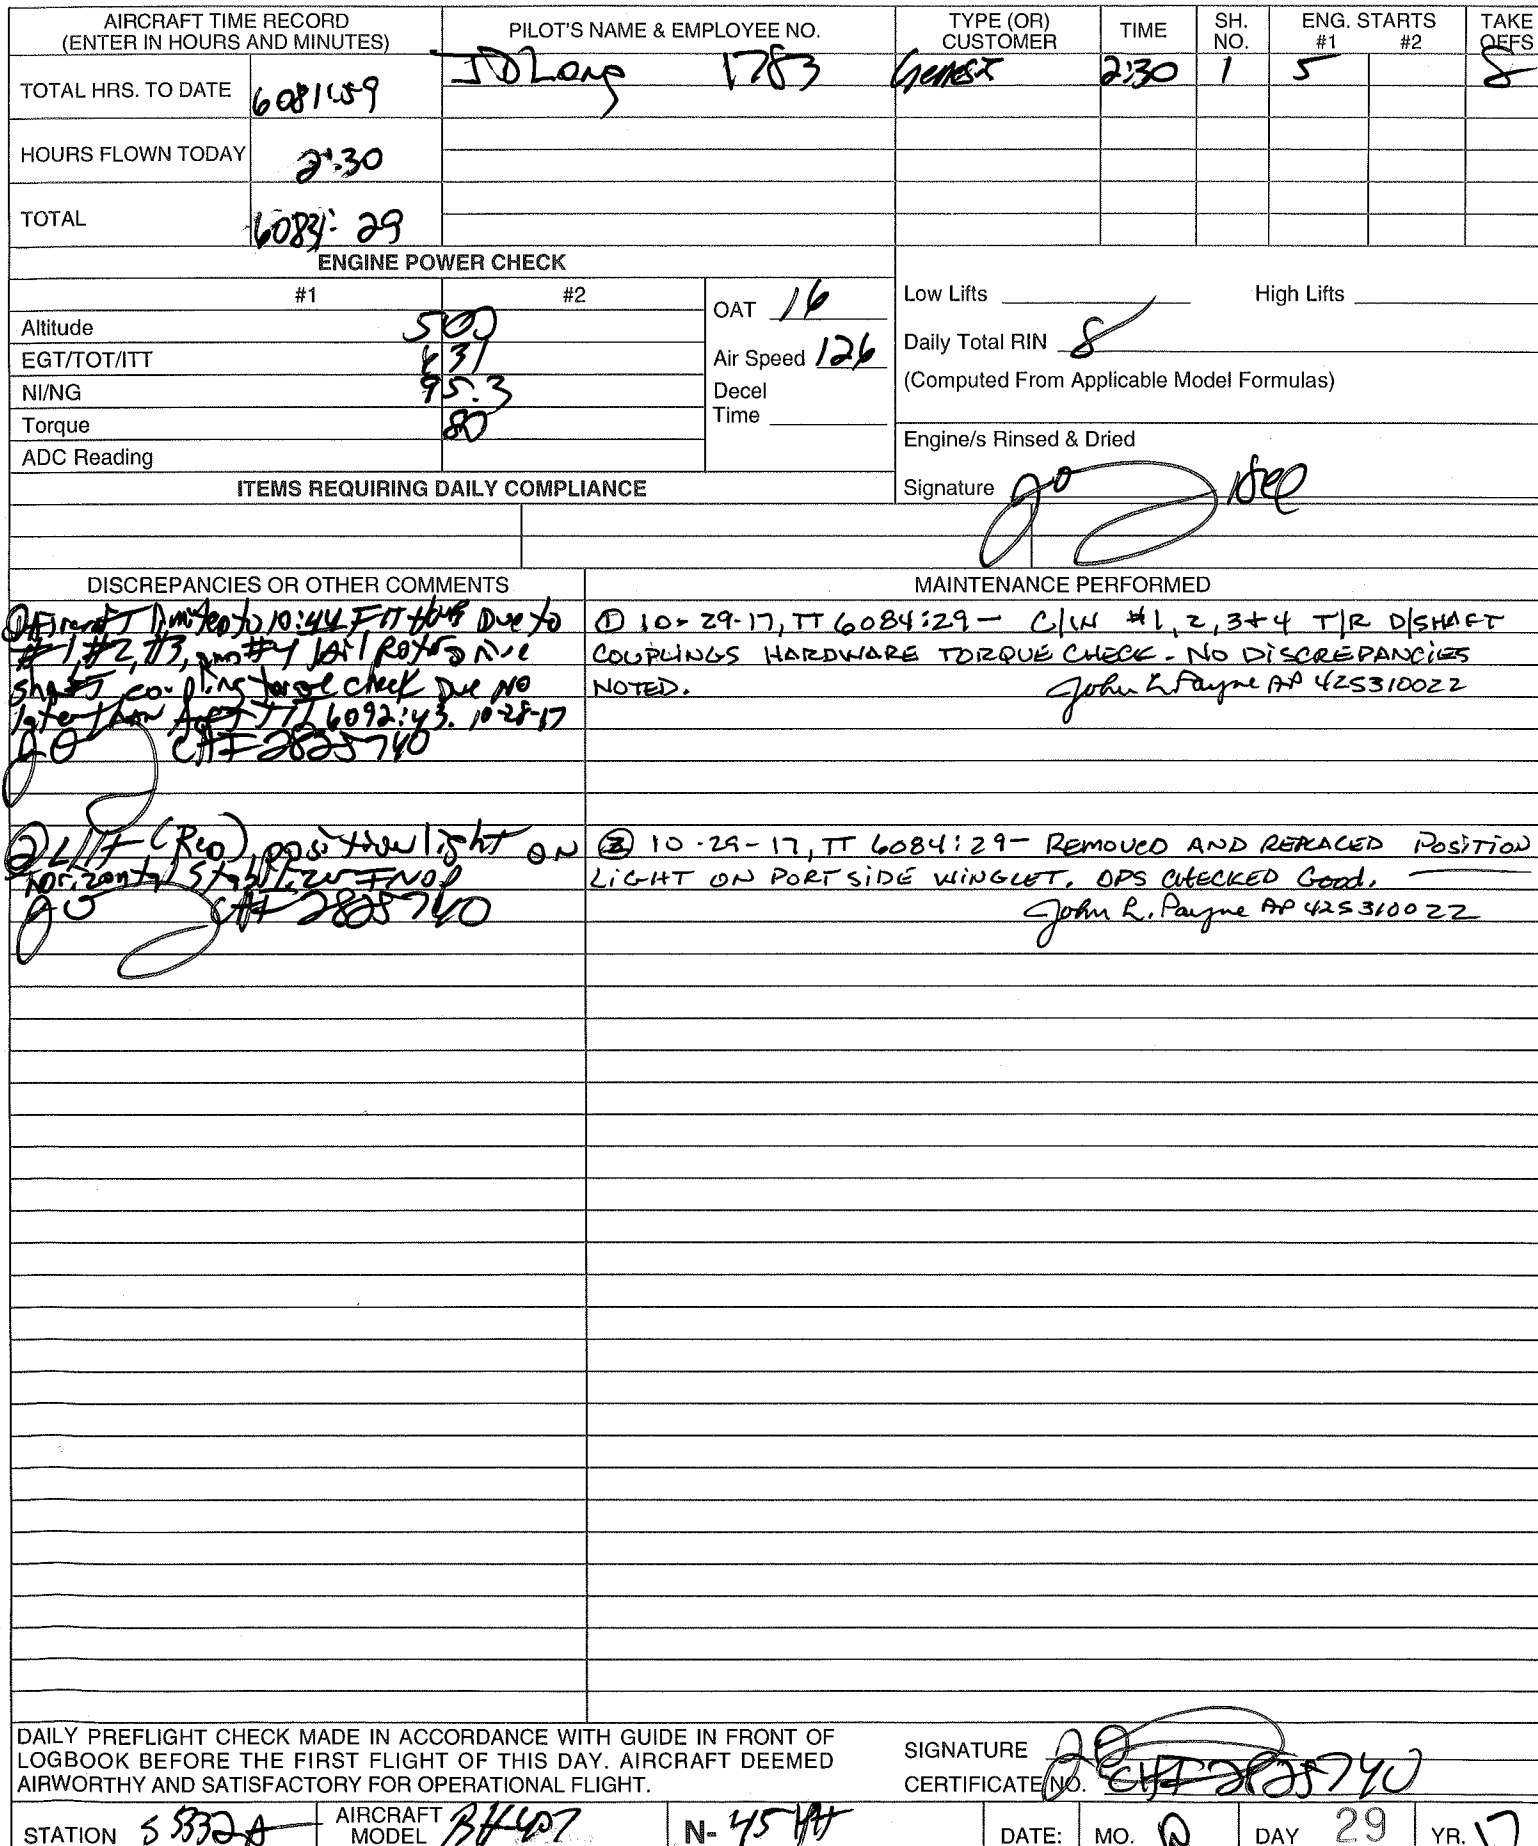 AIRCRAFT TIME RECORD
(ENTER IN HOURS AND MINUTES)
PILOT'S NAME & EMPLOYEE NO.
TYPE (OR)
CUSTOMER
TIME
SH.
NO.
ENG. STARTS
#1 #2
TAKE
OFFS
TOTAL HRS. TO DATE 6081:59
JD Long 1783 2:30 1 5 8
HOURS FLOWN TODAY 2:30
TOTAL 6084:29
ENGINE POWER CHECK
#1 #2
Altitude 500
EGT/TOT/ITT 631
NI/NG 95.3
Torque 80
ADC Reading
OAT 16
Air Speed 126
Decel
Time
Low Lifts High Lifts
Daily Total RIN 8
(Computed From Applicable Model Formulas)
Engine/s Rinsed & Dried
Signature
ITEMS REQUIRING DAILY COMPLIANCE
DISCREPANCIES OR OTHER COMMENTS
① Aircraft limited to 10:44 Flt hour Due to
#1, #2, #3, and #4 tail Rotor Drive
shaft coupling torque check Due NO
later than Acft TT 6092:43. 10-28-17
CFI 2825740
② L/H (Red) position light ON
Horizontal Stabilizer INOP
CFI 2825740
MAINTENANCE PERFORMED
① 10-29-17, TT 6084:29 - C/W #1, 2, 3+4 T/R D/SHAFT
COUPLINGS HARDWARE TORQUE CHECK. NO DISCREPANCIES
NOTED. John R. Payne AP 425310022
② 10-29-17, TT 6084:29 - REMOVED AND REPLACED POSITION
LIGHT ON PORT SIDE WINGLET. OPS CHECKED GOOD.
John R. Payne AP 425310022
DAILY PREFLIGHT CHECK MADE IN ACCORDANCE WITH GUIDE IN FRONT OF
LOGBOOK BEFORE THE FIRST FLIGHT OF THIS DAY. AIRCRAFT DEEMED
AIRWORTHY AND SATISFACTORY FOR OPERATIONAL FLIGHT.
SIGNATURE
CERTIFICATE NO. CFI 2825740
STATION SS332A
AIRCRAFT
MODEL BH407
N-
DATE: MO. DAY 29 YR. 17